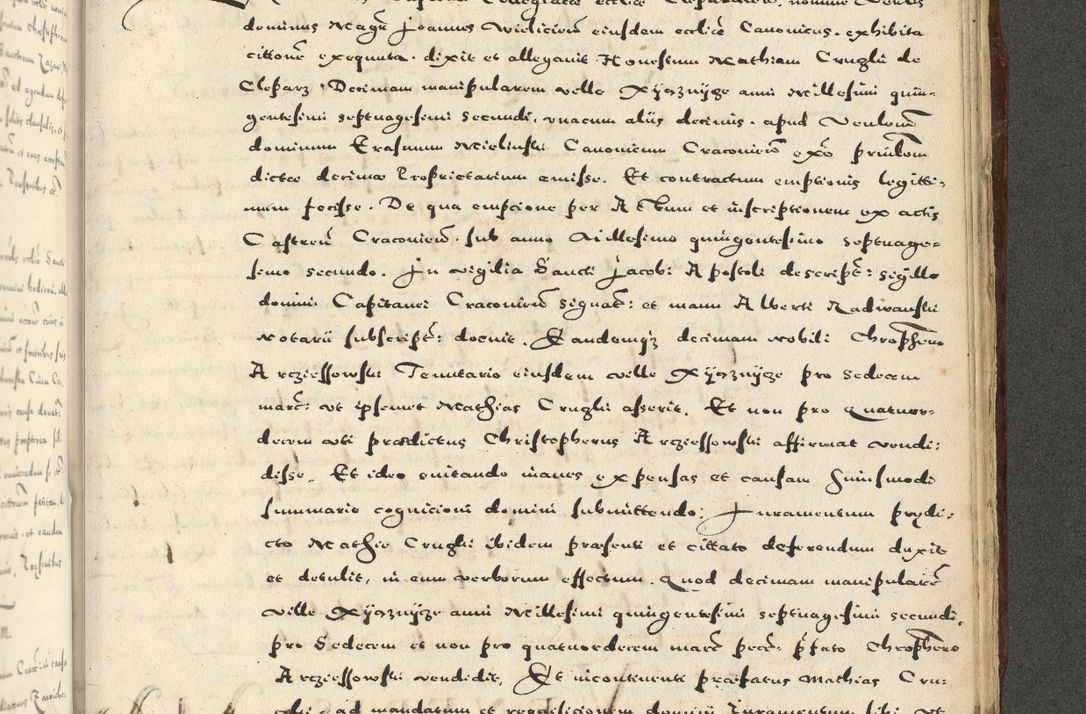 Collegiatae ecclie Cleparden. nomine Venlis
dominus Magr Joannes Wieliciен eiusdem ecclie Canonicus. exhibita
cittone exequuta. dixit et allegavit Honestum Mathiam Cruglii de
Cleparz Decimam manipularem ville Xyąznycze anni Millesimi quin-
gentesimi septuagesimi secundi, vnacum aliis decimis. apud Venlem
dominum Erasmum Mielinski Canonicum Cracovien exo
dictae decimae Proprietarium emisse. Et contractum emptionis legitti-
mum fecisse. De qua empcione per et inscriptionem ex actis
Castren Cracovien. sub anno Millesimo quingentesimo septuage-
simo secundo. In vigilia Sancti Jacobi Apostoli descript: sigillo
domini Capitanei Cracovien signat: et manu Alberti Radwanskii
Notarii subscript: docuit. Eandemqz decimam nobili Chrophero
Arcziessowskii Tenutario eiusdem ville Xyąznycze pro sedecem
marc: vt ipsemet Mathias Cruglii asserit. Et non pro quatuor-
decem vti praedictus Christopherus Arcziessowskii affirmat vendi-
disse. Et ideo euitando inanes expensas et causam huiusmodi
summarie cognicioni domini submittendo: Juramentum prędi-
cto Mathie Cruglii ibidem praesenti et cittato deferendum duxit
et detulit, in eum verborum effectum. Quod decimam manipularem
ville Xyąznycze anni Millesimi quingentesimi septuagesimi secundi,
pro Sedecem et non pro quatuordecem marc pecu: pfato Chrophero
Arcziessowskii vendidit, Et incontinenti praefatus Mathias Cru-
glii ad mandatum et requisicionem domini Juramentum sibi vt